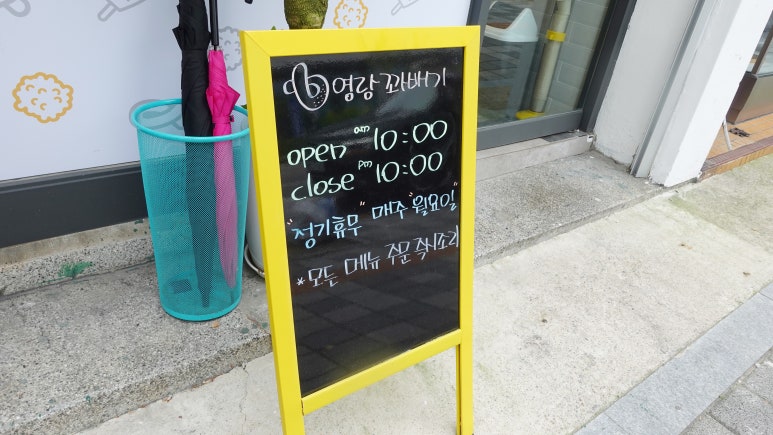 영랑 꽈배기
open am 10:00
close pm 10:00
"정기휴무" 매주 "월요일"
*모든 메뉴 주문 즉시조리